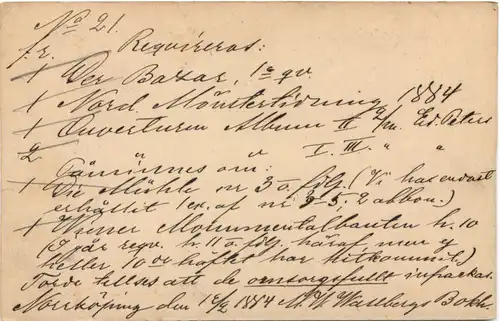 No 21.
f.r. Requireras:
+ Der Bazar, 1a qv.
+ Nord Mönstertidning 1884
+ Ouverturen Album II 2/m. Ed. Peters
2 " I. III. " "
Påminnes om:
+ Die Mühle nr 3 o. följ. (Vi has endast
erhållit 1 ex. af nr 2 abbon.)
+ Wiener Monumentalbauten h. 10
(I går reqv. h. 11 o. följ. häraf men ej
heller 10de häftet har hitkommit)
Torde tillses att de omsorgsfullt inpackas.
Norrköping den 18/2 1884 M. W. Wallbergs Bokh.